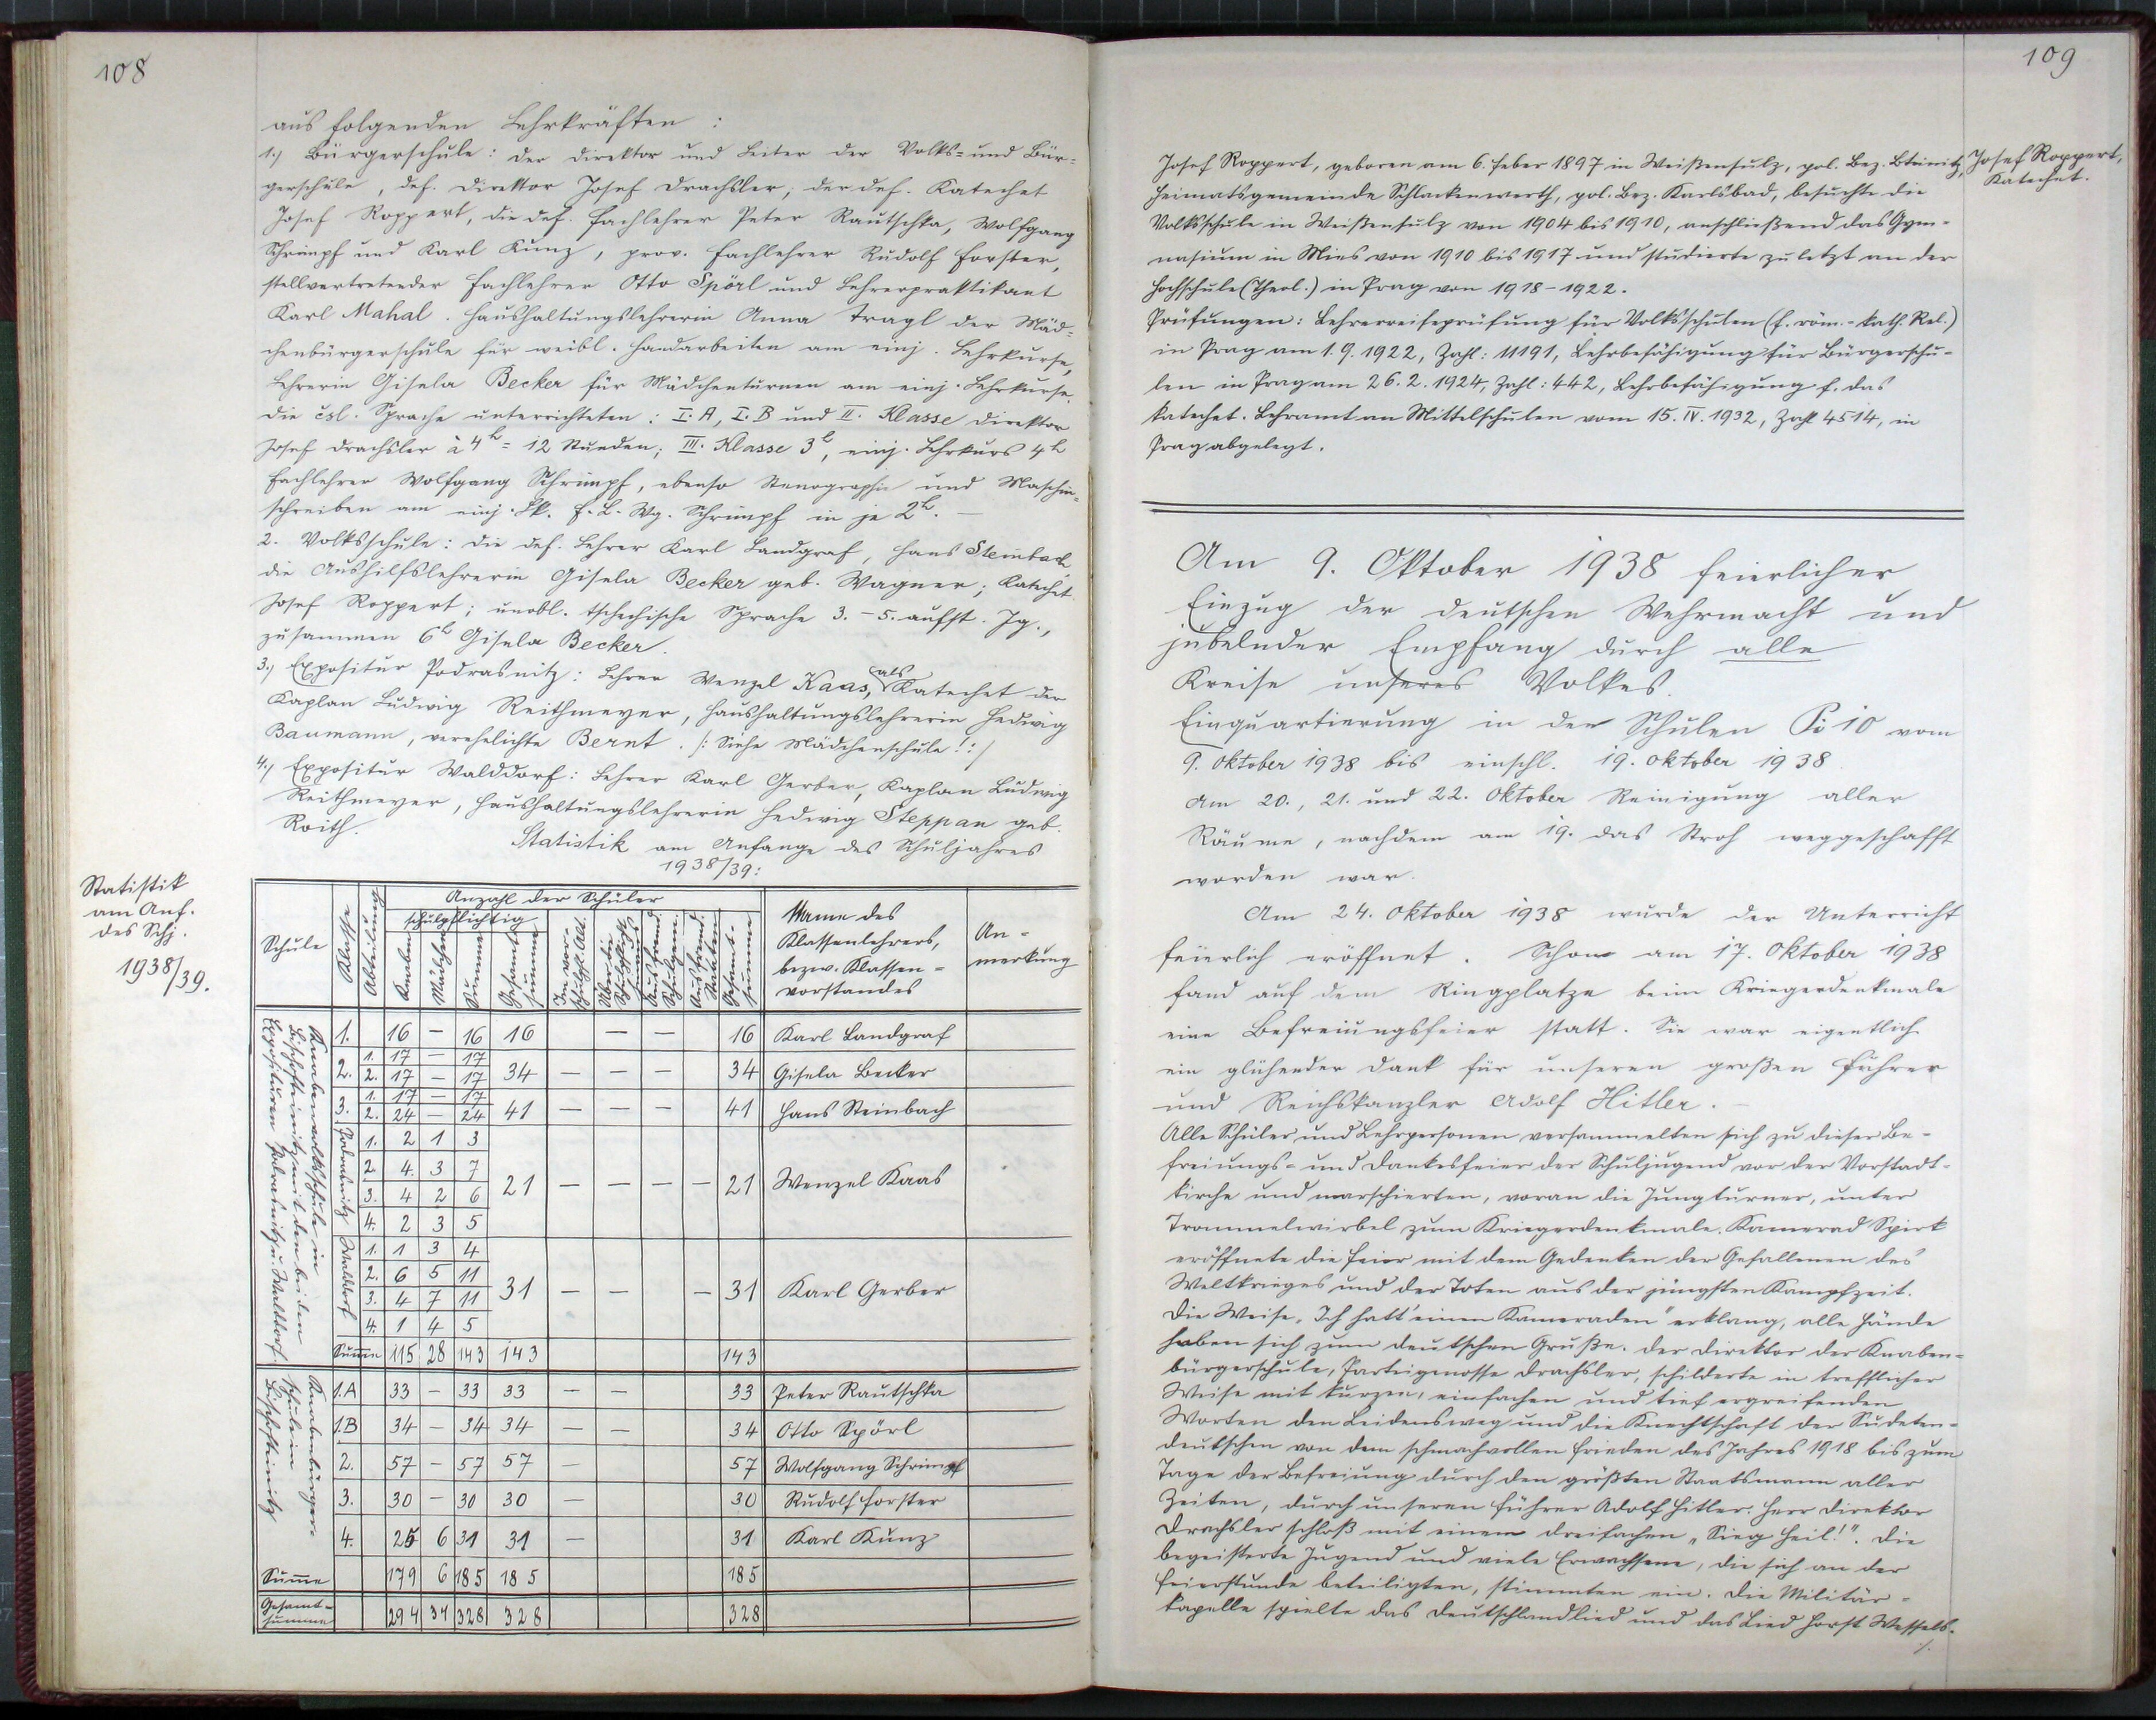 108
aus folgenden Lehrkräften :
1.) Bürgerschule : Der Direktor und Leiter der Volks- und Bür-
gerschule, def. Direktor Josef Drachsler, der def. Katechet
Josef Roppert, die def. Fachlehrer Peter Rautschka, Wolfgang
Schrimpf und Karl Kunz, prov. Fachlehrer Rudolf Forster,
stellvertretender Fachlehrer Otto Spörl und Lehrerpraktikant
Karl Mahal. Haushaltungslehrerin Anna Tragl der Mäd-
chenbürgerschule für weibl. Handarbeiten am einj. Lehrkurse,
Lehrerin Gisela Becker für Mädchenturnen am einj. Lehrkurse.
Die čsl. Sprache unterrichteten : I. A, I. B und II. Klasse Direktor
Josef Drachsler à 4h = 12 Stunden; III. Klasse 3h, einj. Lehrkurs 4h
Fachlehrer Wolfgang Schrimpf, ebenso Stenographie und Maschin-
schreiben am einj. Lk. F. L. Wg. Schrimpf in je 2h. —
2. Volksschule : Die def. Lehrer Karl Landgraf, Hans Steinbach
die Aushilfslehrerin Gisela Becker geb. Wagner; Katechet
Josef Roppert; unobl. tschechische Sprache 3. – 5. aufst. Jg.,
zusammen 6h Gisela Becker.
3.) Expositur Podrasnitz : Lehrer Wenzel Kaas, als Katechet der
Kaplan Ludwig Reithmeyer, Haushaltungslehrerin Hedwig
Baumann, verehelichte Bernt. /: Siehe Mädchenschule! :/
4.) Expositur Walddorf : Lehrer Karl Gerber, Kaplan Ludwig
Reithmeyer, Haushaltungslehrerin Hedwig Steppan geb.
Roith.
Statistik am Anfange des Schuljahres
1938/39 :
Statistik
am Anf.
des Schj.
1938/39.
Schule Klasse Abteilung Anzahl der Schüler Name des Klassenlehrers, bezw. Klassen-vorstandes An-merkung
schulpflichtig
Knaben Mädchen Summe Gesamtsumme Gesamt-summe
Knabenvolksschule in
Bischofteinitz mit den beiden
Exposituren Podrasnitz u. Walddorf.
1. 16 — 16 16 — — 16 Karl Landgraf
2. 1. 17 — 17
2. 17 — 17 34 — — — 34 Gisela Becker
3. 1. 17 — 17
2. 24 — 24 41 — — — 41 Hans Steinbach
Podrasnitz 1. 2 1 3
2. 4. 3 7
3. 4 2 6 21 — — — — 21 Wenzel Kaas
4. 2 3 5
Walddorf 1. 1 3 4
2. 6 5 11
3. 4 7 11 31 — — — 31 Karl Gerber
4. 1 4 5
Summe 115 28 143 143 143
Knabenbürger-
schule in
Bischofteinitz
1.A 33 — 33 33 — — 33 Peter Rautschka
1.B 34 — 34 34 — — 34 Otto Spörl
2. 57 — 57 57 — 57 Wolfgang Schrimpf
3. 30 — 30 30 — 30 Rudolf Forster
4. 25 6 31 31 — 31 Karl Kunz
Summe 179 6 185 185 185
Gesamt-summe 294 34 328 328 328
109
Josef Roppert, geboren am 6. Feber 1897 in Weißensulz, pol. Bez. Bteinitz,
Heimatsgemeinde Schlackenwerth, pol. Bez. Karlsbad, besuchte die
Volksschule in Weißensulz von 1904 bis 1910, anschließend das Gym-
nasium in Mies von 1910 bis 1917 und studierte zuletzt an der
Hochschule (Theol.) in Prag von 1918 – 1922.
Prüfungen : Lehrerreifeprüfung für Volksschulen (f. röm.-kath. Rel.)
in Prag am 1. 9. 1922, Zahl : 11191, Lehrbefähigung für Bürgerschu-
len in Prag am 26. 2. 1924, Zahl : 442, Lehrbefähigung f. das
katechet. Lehramt an Mittelschulen vom 15. IV. 1932, Zahl 4514, in
Prag abgelegt.
Josef Roppert,
Katechet.
Am 9. Oktober 1938 feierlicher
Einzug der deutschen Wehrmacht und
jubelnder Empfang durch alle
Kreise unseres Volkes.
Einquartierung in den Schulen 10 vom
9. Oktober 1938 bis einschl. 19. Oktober 1938.
Am 20., 21. und 22. Oktober Reinigung aller
Räume, nachdem am 19. das Stroh weggeschafft
worden war.
Am 24. Oktober 1938 wurde der Unterricht
feierlich eröffnet. Schon am 17. Oktober 1938
fand auf dem Ringplatze beim Kriegerdenkmale
eine Befreiungsfeier statt. Sie war eigentlich
ein glühender Dank für unseren großen Führer
und Reichskanzler Adolf Hitler. —
Alle Schüler und Lehrpersonen versammelten sich zu dieser Be-
freiungs- und Dankesfeier der Schuljugend vor der Vorstadt-
kirche und marschierten, voran die Jungturner, unter
Trommelwirbel zum Kriegerdenkmale. Kamerad Spirk
eröffnete die Feier mit dem Gedenken der Gefallenen des
Weltkrieges und der Toten aus der jüngsten Kampfzeit.
Die Weise „Ich hatt' einen Kameraden" erklang, alle Hände
hoben sich zum deutschen Gruße. Der Direktor der Knaben-
bürgerschule, Parteigenosse Drachsler, schilderte in trefflicher
Weise mit kurzen, einfachen und tief ergreifenden
Worten den Leidensweg und die Knechtschaft der Sudeten-
deutschen von dem schmachvollen Frieden des Jahres 1918 bis zum
Tage der Befreiung durch den größten Staatsmann aller
Zeiten, durch unseren Führer Adolf Hitler. Herr Direktor
Drachsler schloß mit einem dreifachen „Sieg Heil!". Die
begeisterte Jugend und viele Erwachsene, die sich an der
Feierstunde beteiligten, stimmten ein. Die Militär-
kapelle spielte das Deutschlandlied und das Lied Horst Wessels.
./.